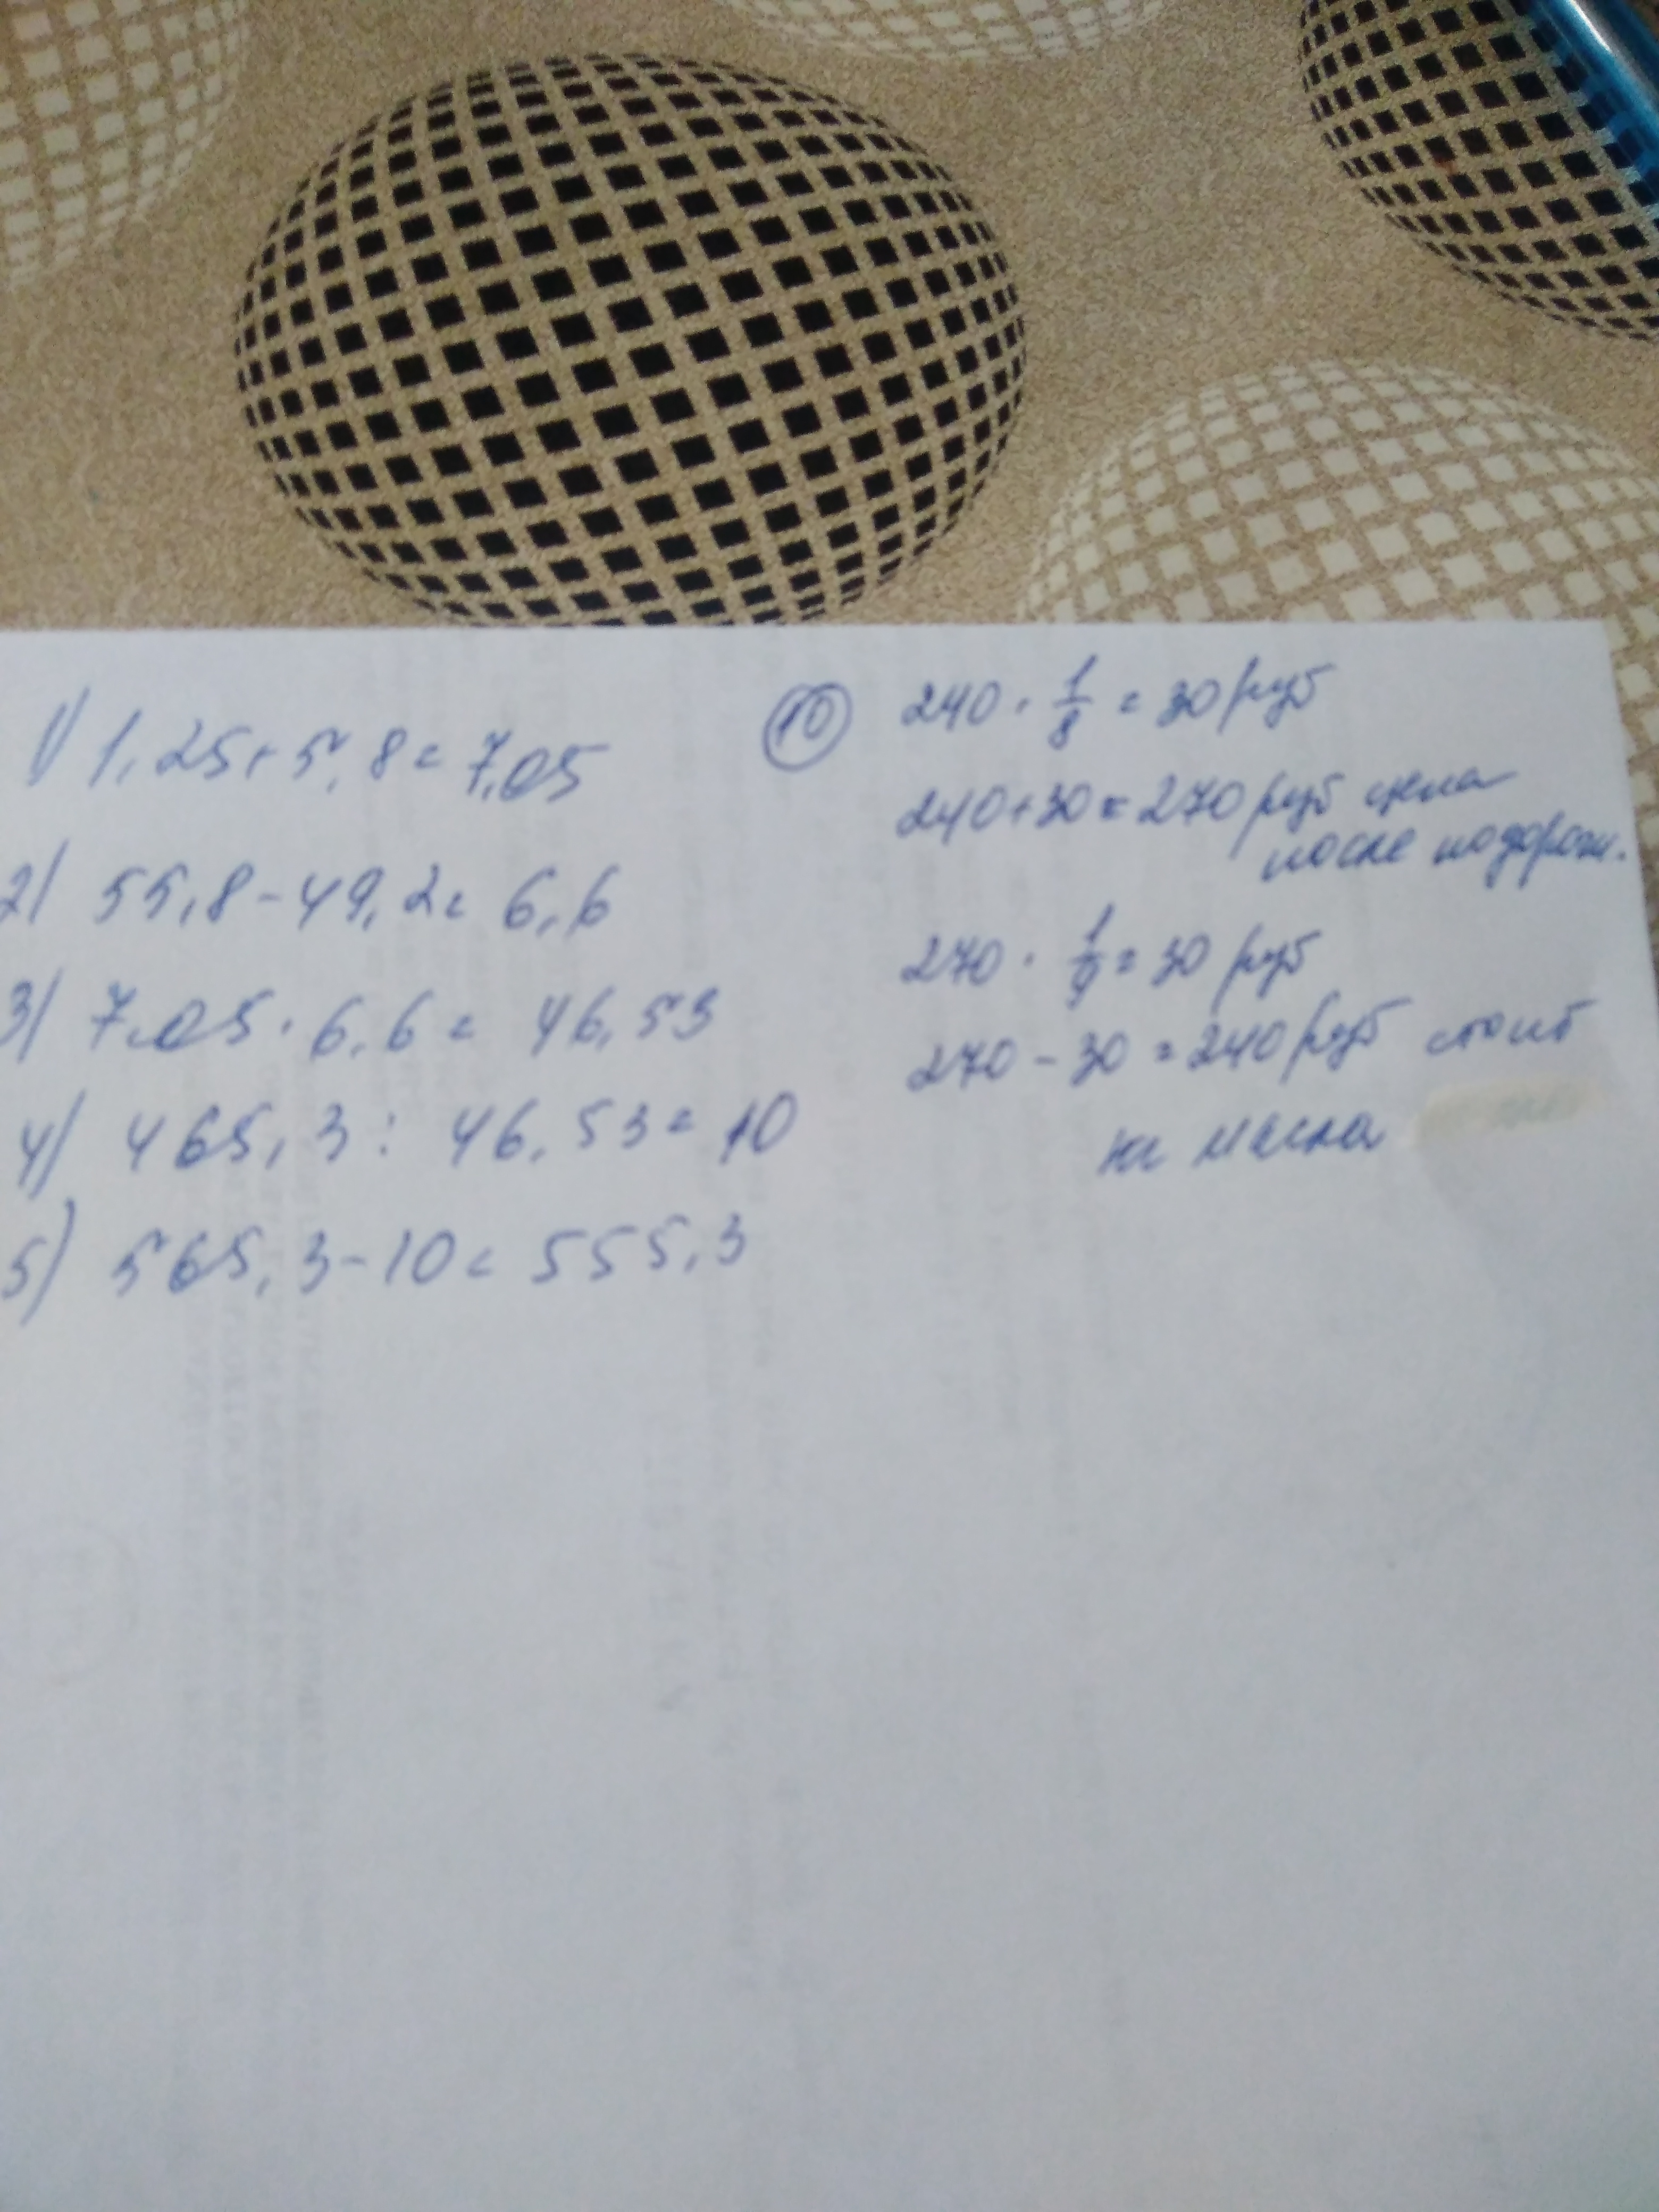 1) 1,25+5,8=7,05
2) 55,8-49,2=6,6
3) 7,05·6,6=46,53
4) 465,3:46,53=10
5) 565,3-10=555,3
10 240·1/8=30 руб
240+30=270 руб цена
после подорож.
270·1/9=30 руб
270-30=240 руб стоит